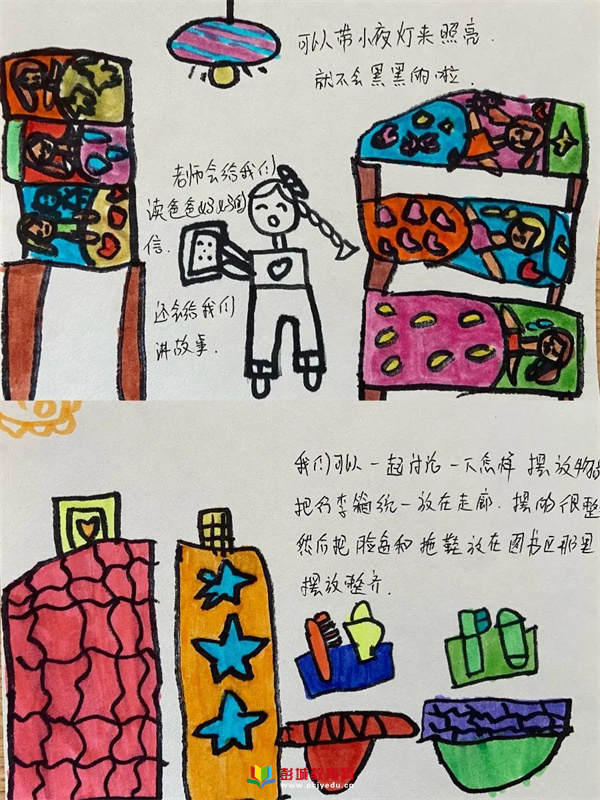 可以带小夜灯来照亮.
就不会黑黑的啦.
老师会给我们
读爸爸妈妈的
信.
还会给我们
讲故事.
我们可以一起讨论一下怎样 摆放物品
把行李箱统一放在走廊. 摆的很整
然后把脸盆和拖鞋放在图书区那里
摆放整齐.
彭城教育网
www.pcjyedu.cn